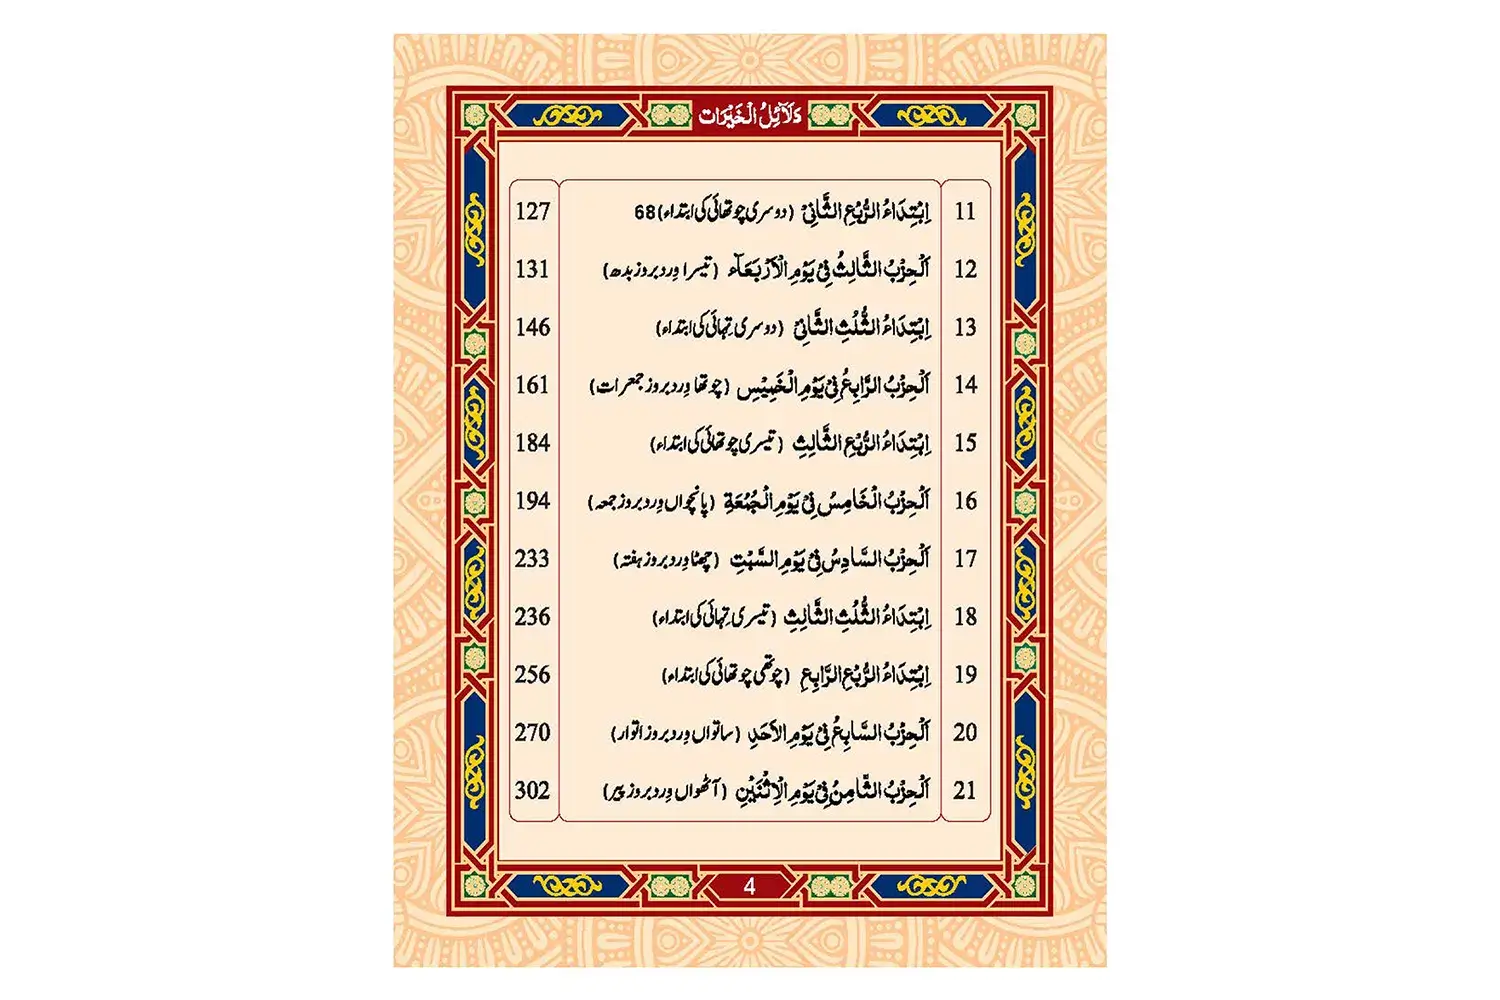 دَلَآئِلُ الْخَیْرَات
11 اِبْتِدَاءُ الرُّبْعِ الثَّانِیْ (دوسری چوتھائی کی ابتداء) 68 127
12 اَلْحِزْبُ الثَّالِثُ فِیْ یَوْمِ الْاَرْبَعَآء (تیسرا وِرد بروز بدھ) 131
13 اِبْتِدَاءُ الثُّلُثِ الثَّانِیْ (دوسری تِہائی کی ابتداء) 146
14 اَلْحِزْبُ الرَّابِعُ فِیْ یَوْمِ الْخَمِیْسِ (چوتھا وِرد بروز جمعرات) 161
15 اِبْتِدَاءُ الرُّبْعِ الثَّالِثِ (تیسری چوتھائی کی ابتداء) 184
16 اَلْحِزْبُ الْخَامِسُ فِیْ یَوْمِ الْجُمُعَةِ (پانچواں وِرد بروز جمعہ) 194
17 اَلْحِزْبُ السَّادِسُ فِیْ یَوْمِ السَّبْتِ (چھٹا وِرد بروز ہفتہ) 233
18 اِبْتِدَاءُ الثُّلُثِ الثَّالِثِ (تیسری تِہائی کی ابتداء) 236
19 اِبْتِدَاءُ الرُّبْعِ الرَّابِعِ (چوتھی چوتھائی کی ابتداء) 256
20 اَلْحِزْبُ السَّابِعُ فِیْ یَوْمِ الْاَحَدِ (ساتواں وِرد بروز اتوار) 270
21 اَلْحِزْبُ الثَّامِنُ فِیْ یَوْمِ الْاِثْنَیْنِ (آٹھواں وِرد بروز پیر) 302
4